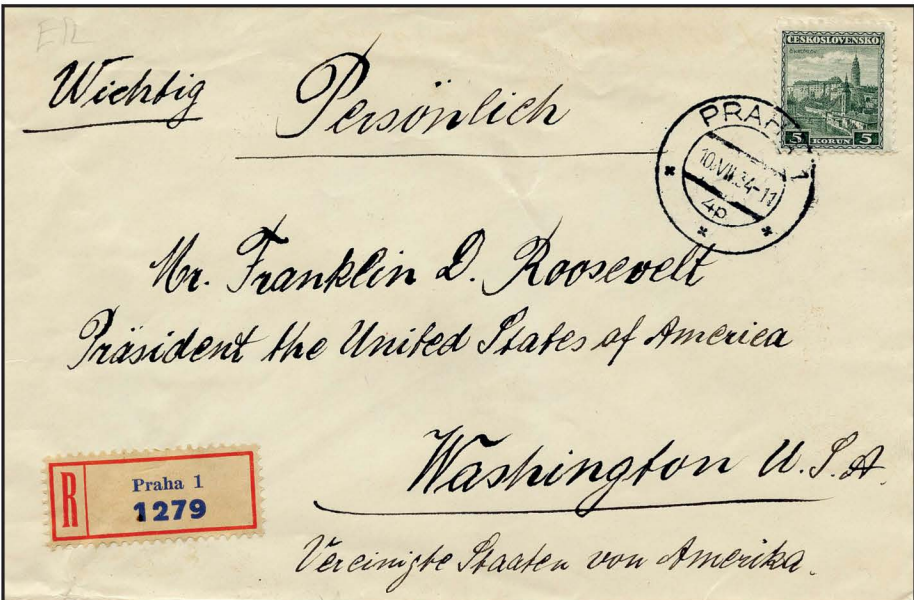 Wichtig
Persönlich
ČESKOSLOVENSKO
5 KORUN 5
PRAHA 1
10.VII.34-11
4p
Mr. Franklin D. Roosevelt
Präsident the United States of America
Washington U.S.A.
Vereinigte Staaten von Amerika.
R
Praha 1
1279